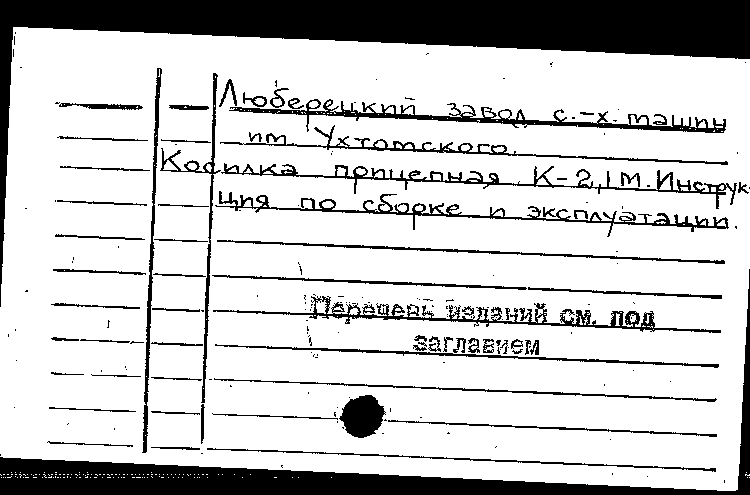 Люберецкий завод с.-х. машин
им. Ухтомского.
Косилка прицепная К-2,1М. Инструк-
ция по сборке и эксплуатации.
Перечень изданий см. под
заглавием